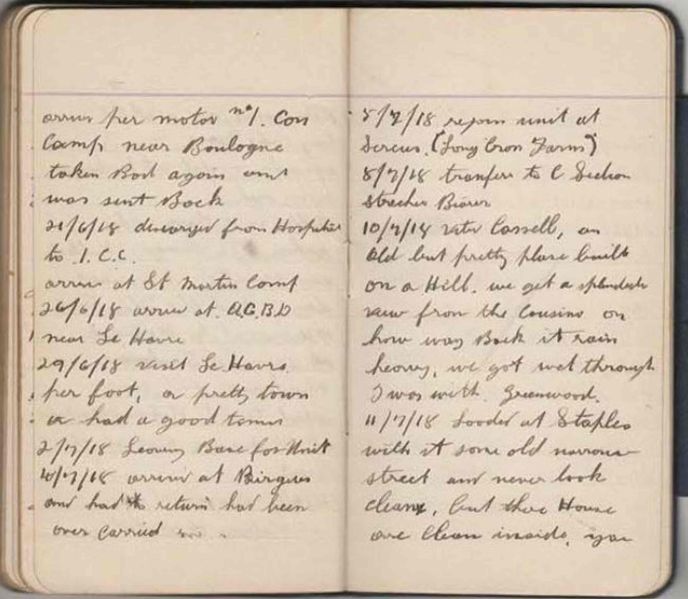 arrive per motor No 1. Con
Camp near Boulogne
taken Bad again and
was sent Back
21/6/18 discarged from Hospital
to 1. C.C.
arrive at St Martin Camp
26/6/18 arrive at A.G.B.D
near Le Havre
29/6/18 visit Le Havre
per foot, a pretty town
had a good
2/7/18 Leaving Base for Unit
4/7/18 arrived at
and had to return had been
over carried
5/7/18 rejoin unit at
Sercus. (Long Cron Farm)
8/7/18 tranfere to C Section
Strecher Bearer
10/7/18 Cassell, an
old but pretty place built
on a Hill. we get a splendid
view from the on
how way Back it rain
heavy, we got wet through
I was with Greenwood.
11/7/18 at Staples
with it some old narrow
street and never look
clean, but the House
are clean inside, you